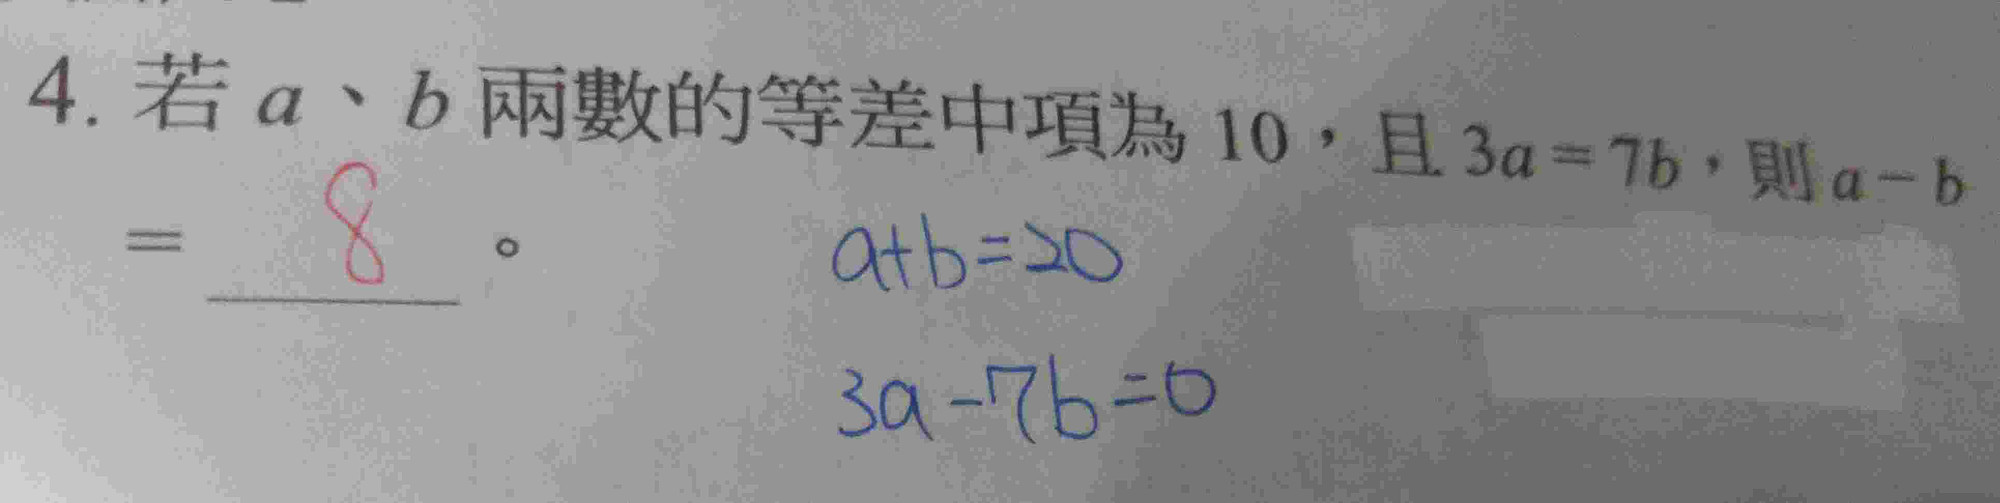 4. 若 a、b 兩數的等差中項為 10，且 3a=7b，則 a-b
= 8 。
a+b=20
3a-7b=0